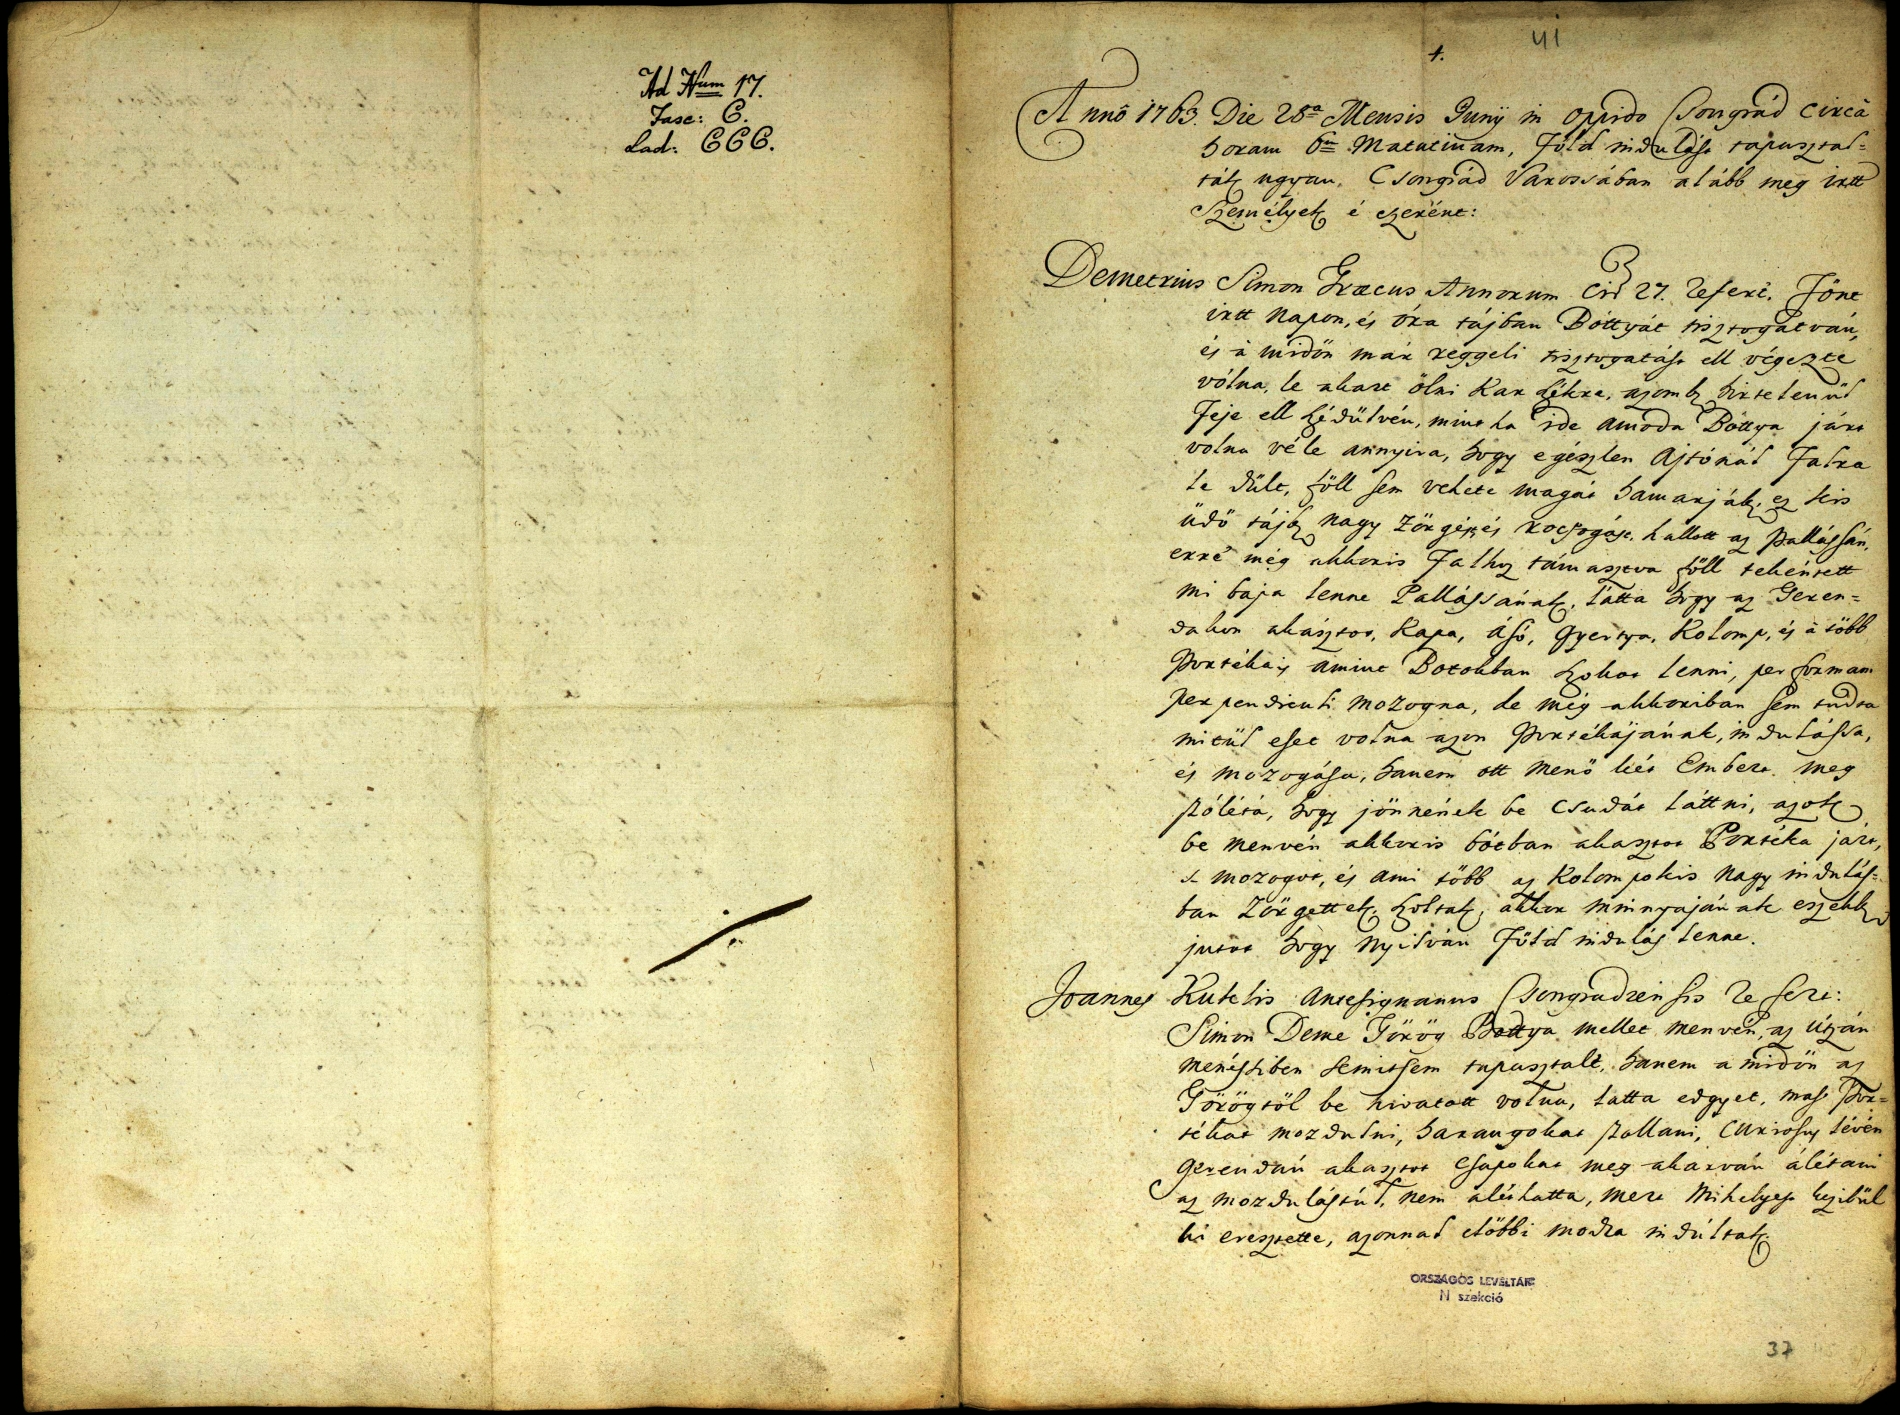 Ad Num 17.
Fasc: C.
Lad: CCC.
41
1.
Annô 1763. Die 28a Mensis Junÿ in Oppido Csongrád Circa
horam 6tam Matutinam, Föld indulást tapusztal=
ták ugyan, Csongrád Várossában alább meg irtt
Személyek é szerént:
Demetrius Simon Græcus Annorum Cir 27. refert. Fönt
irtt Napon, és óra tájban Bóttyát tisztogatván,
és à midőn már reggeli tisztogatást ell végezte
vólna, le akart ölni Kar székre, azomb hirtelenűl
Feje ell szédűlvén, mint ha ide amoda Bóttya járt
volna véle annyira, hogy egészlen Ajtónál Falra
le dűlt, föll sem vehete magát hamarják, ez kis
üdő tájb nagy Zörgést és rocsogást hallott az Pallássán,
erré még akkoris Falhoz támasztva föll tekéntett
mi baja lenne Pallássának, látta hogy az Geren=
dákon akásztot, Kapa, Ásó, Gyertya, Kolomp, és à több
Portékáis amint Botokban szokot lenni, per formam
perpendiculi mozogna, de még akkoriban sem tudta
mitűl eset volna azon Portékájának, indulássa,
és mozogása, hanem ott menő két Embert meg
szólétá, hogy jönnének be Csudát láttni, azok
be menvén akkoris bótban akasztot Portéka járt,
s mozogot, és ami több az Kolompokis nagy indulás=
ban Zörgettek, szoltak, akkor minnyájának eszekb
jutot hogy Nyilván Föld indulás lenne.
Joannes Kutelis Antesignanus Csongradiensis refert:
Simon Deme Görög Bottya mellet menvén, az útzán
menéstiben semitsem tapusztalt, hanem a midőn az
Görögtöl be hivatott volna, latta edgyet, mast Por=
tékat mozdulni, harangokat szollani, Curiosus lévén
gerendán akasztot Csapokat meg akarván álétani
az mozdulástúl, nem aléthatta, mert Mihelyest kezibűl
ki eresztette, azonnal előbbi modra indúltak.
ORSZÁGOS LEVÉLTÁR
N szekció
37